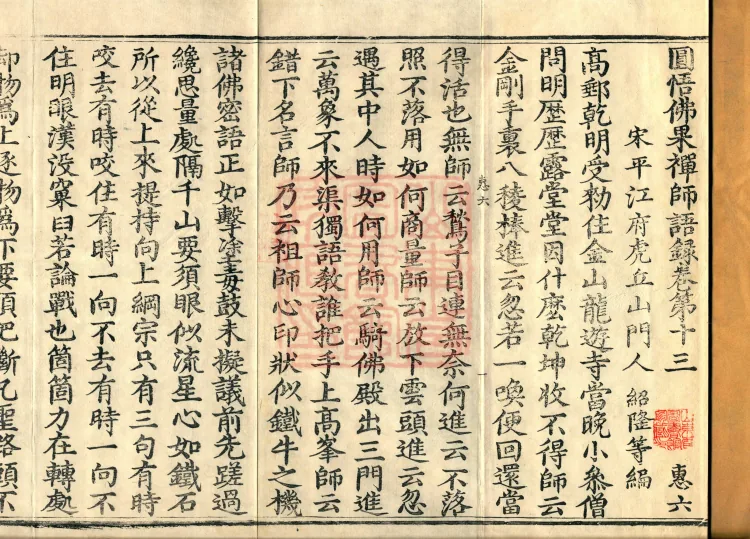 圓悟佛果禪師語録卷第十三 惠六
宋平江府虎丘山門人 紹隆等編
高郵乾明受勑住金山龍遊寺當晚小叅僧
問明歷歷露堂堂因什麽乾坤收不得師云
金剛手裏八稜棒進云忽若一喚便回還當
惠六
得活也無師云鶖子目連無奈何進云不落
照不落用如何商量師云放下雲頭進云忽
遇其中人時如何用師云騎佛殿出三門進
云萬象不來渠獨語教誰把手上高峯師云
錯下名言師乃云祖師心印狀似鐵牛之機
諸佛密語正如擊塗毒鼓未擬議前先蹉過
纔思量處隔千山要須眼似流星心如鐵石
所以從上來提持向上綱宗只有三句有時
咬去有時咬住有時一向不去有時一向不
住明眼漢没窠臼若論戰也箇箇力在轉處
却物爲上逐物爲下要須把斷凡聖路頭不